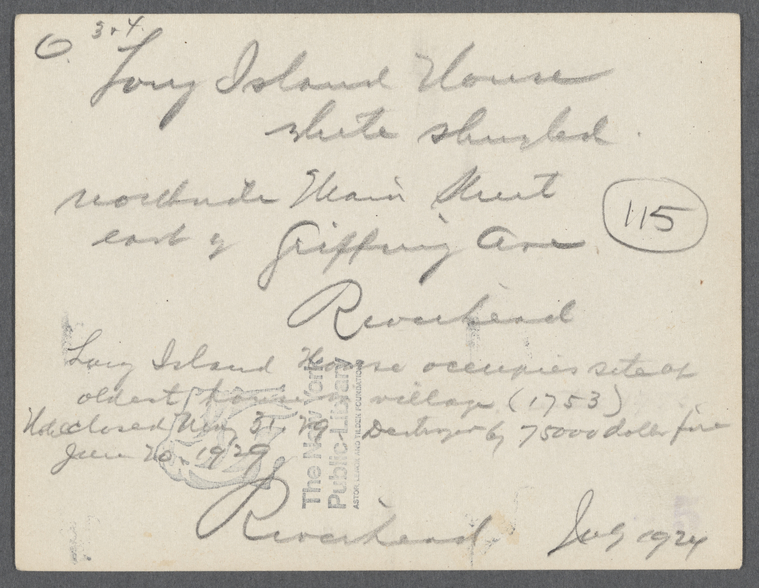 3 & 4.
Long Island House
white shingled.
northside Main Street
east of Griffing Ave.
115
Riverhead
Long Island House occupies site of
oldest house in village (1753)
closed 31, '29 Destroyed by 75000 dollar fire
June 20, 1929
The New York
Public Library
ASTOR, LENOX AND TILDEN FOUNDATIONS
Riverhead July 1924